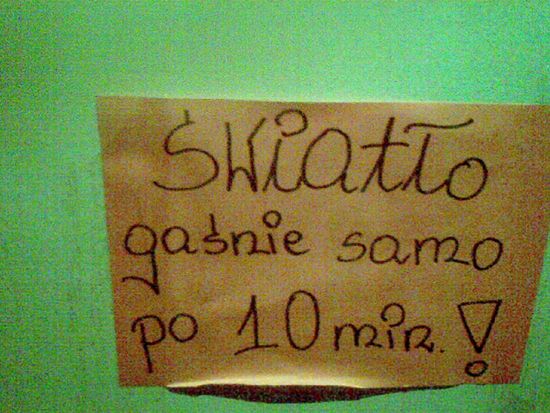 ŚWiatło
gaśnie samo
po 10 min. !